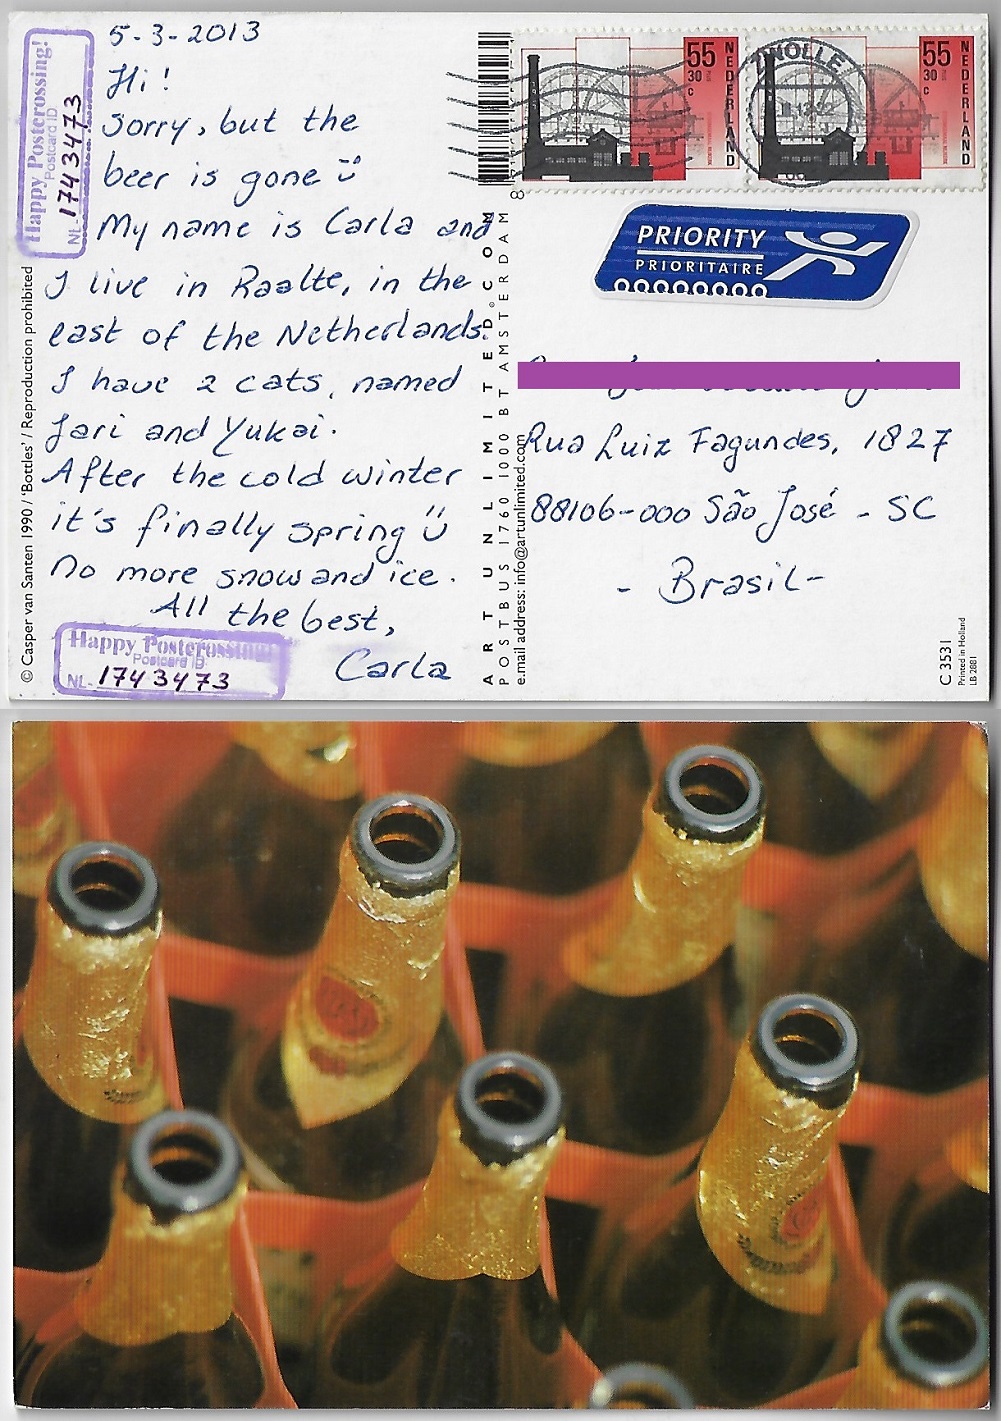 5-3-2013
Hi!
Sorry, but the
beer is gone
My name is Carla and
I live in Raalte, in the
east of the Netherlands.
I have 2 cats, named
Jari and Yukai.
After the cold winter
it's finally spring
No more snow and ice.
All the best,
Carla
Happy Postcrossing!
Postcard ID
NL-1743473
Happy Postcrossing!
Postcard ID
NL-1743473
© Casper van Santen 1990 / 'Bottles' / Reproduction prohibited
ART UNLIMITED.COM
POSTBUS 1760 1000 BT AMSTERDAM
e.mail address: info@artunlimited.com
55
30
c
NEDERLAND
55
30
c
NEDERLAND
ZWOLLE
PRIORITY
PRIORITAIRE
Rua Luiz Fagundes, 1827
88106-000 São José - SC
- Brasil -
C 3531
Printed in Holland
LB 2881